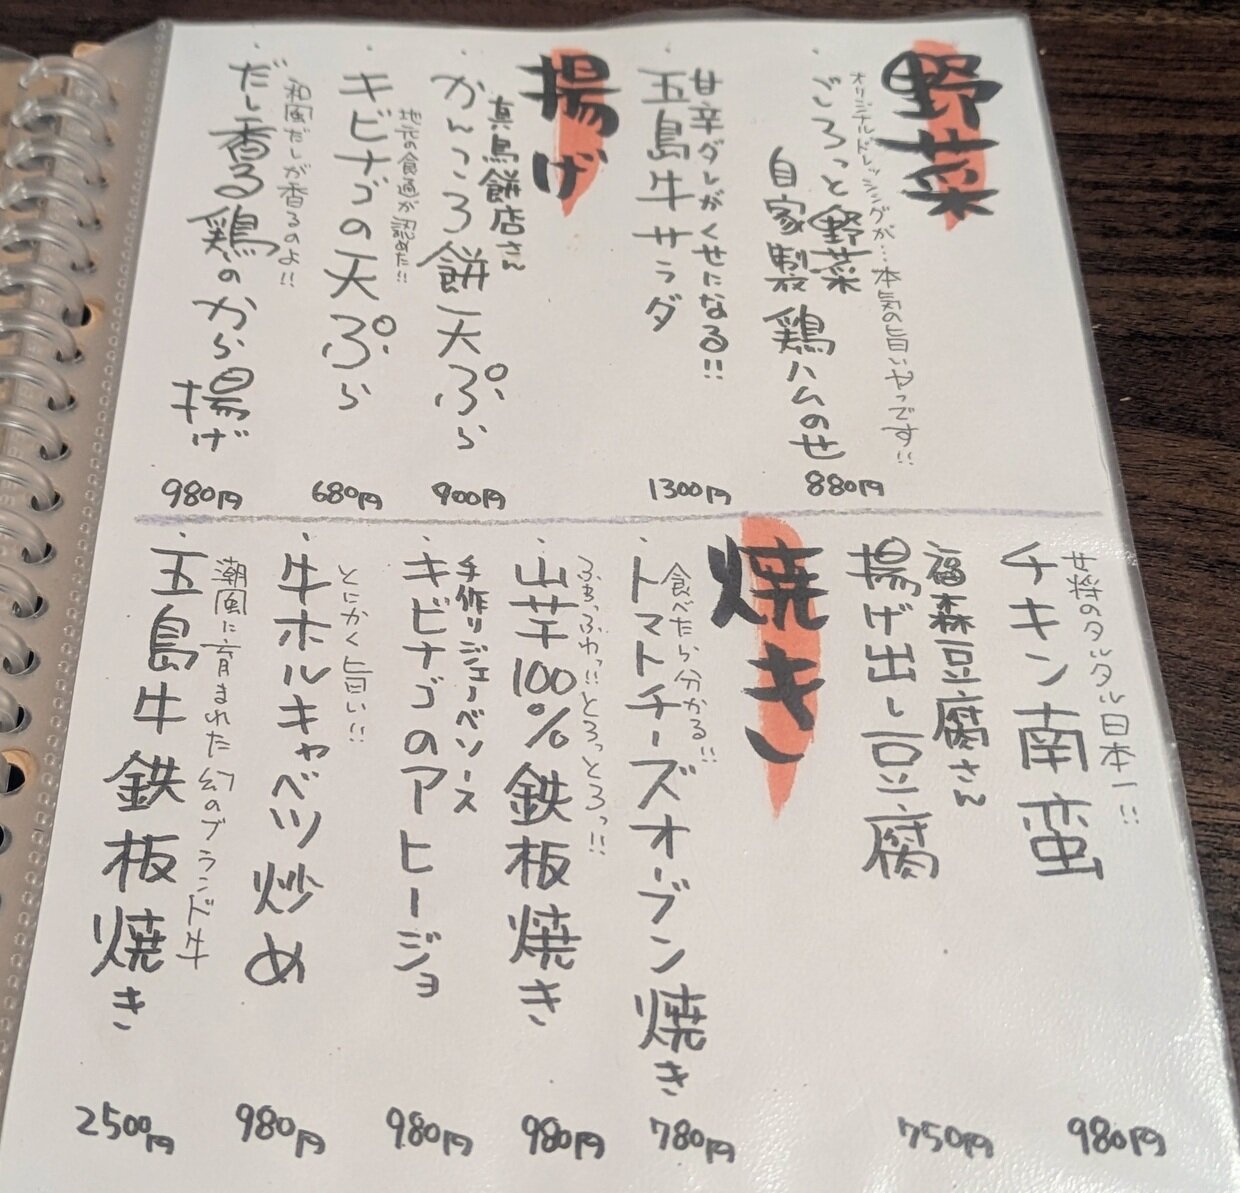 野菜
オリジナルドレッシングが…本気の旨いやつです!!
ごろっと野菜
自家製鶏ハムのせ
880円
甘辛ダレがくせになる!!
五島牛サラダ
1300円
揚げ
真鳥餅店さん
かんころ餅天ぷら
900円
地元の食通が認めた!!
キビナゴの天ぷら
680円
和風だしが香るのよ!!
だし香る鶏のから揚げ
980円
女将のタルタル日本一!!
チキン南蛮
980円
福森豆腐さん
揚げ出し豆腐
750円
焼き
食べたら分かる!!
トマトチーズオーブン焼き
780円
ふわっふわっ!!とろっとろっ!!
山芋100%鉄板焼き
980円
手作りジェノベソース
キビナゴのアヒージョ
980円
とにかく旨い!!
牛ホルキャベツ炒め
980円
潮風に育まれた幻のブランド牛
五島牛鉄板焼き
2500円